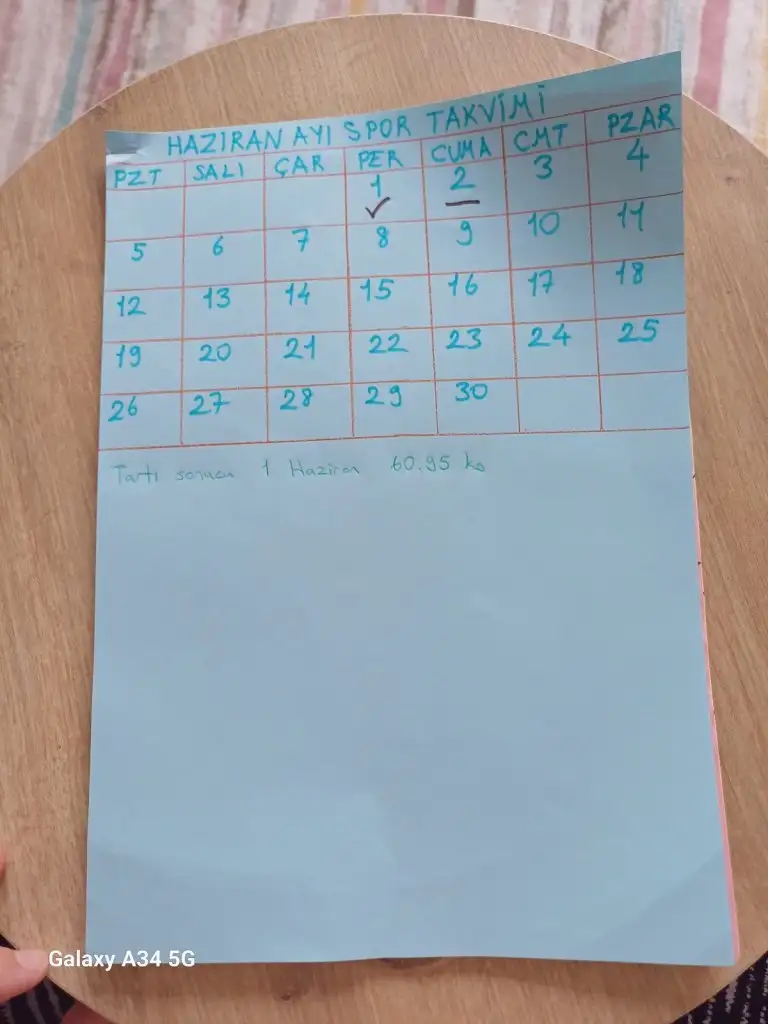 HAZIRAN AYI SPOR TAKVİMİ
PZT SALI ÇAR PER CUMA CMT PZAR
1 2 3 4
✓ —
5 6 7 8 9 10 11
12 13 14 15 16 17 18
19 20 21 22 23 24 25
26 27 28 29 30
Tartı sonucu 1 Haziran 60.95 kg
Galaxy A34 5G